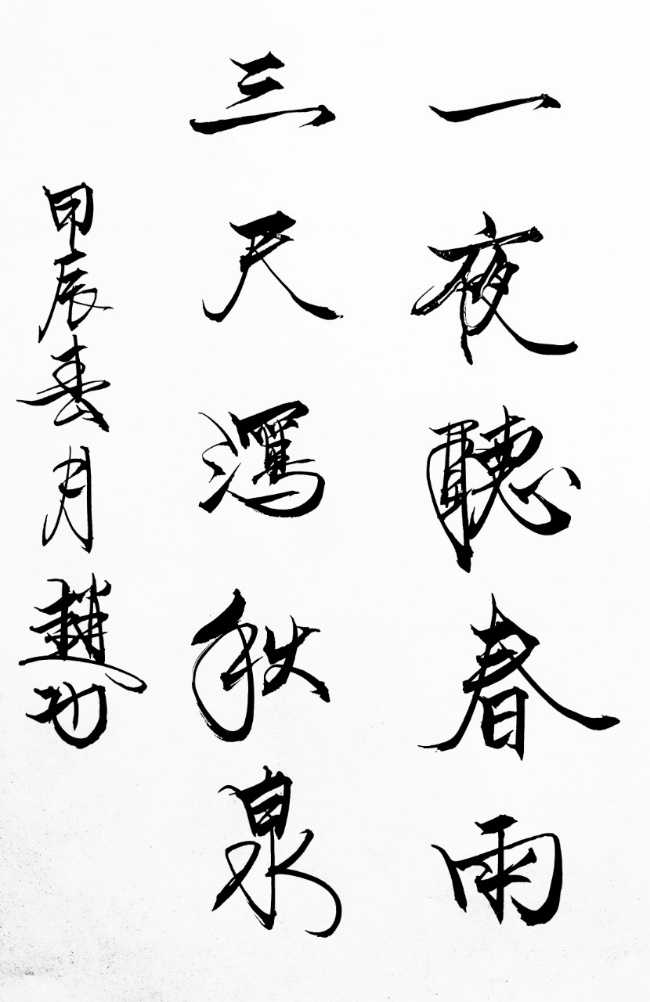 一夜聽春雨
三尺瀉秋泉
甲辰春月趙功